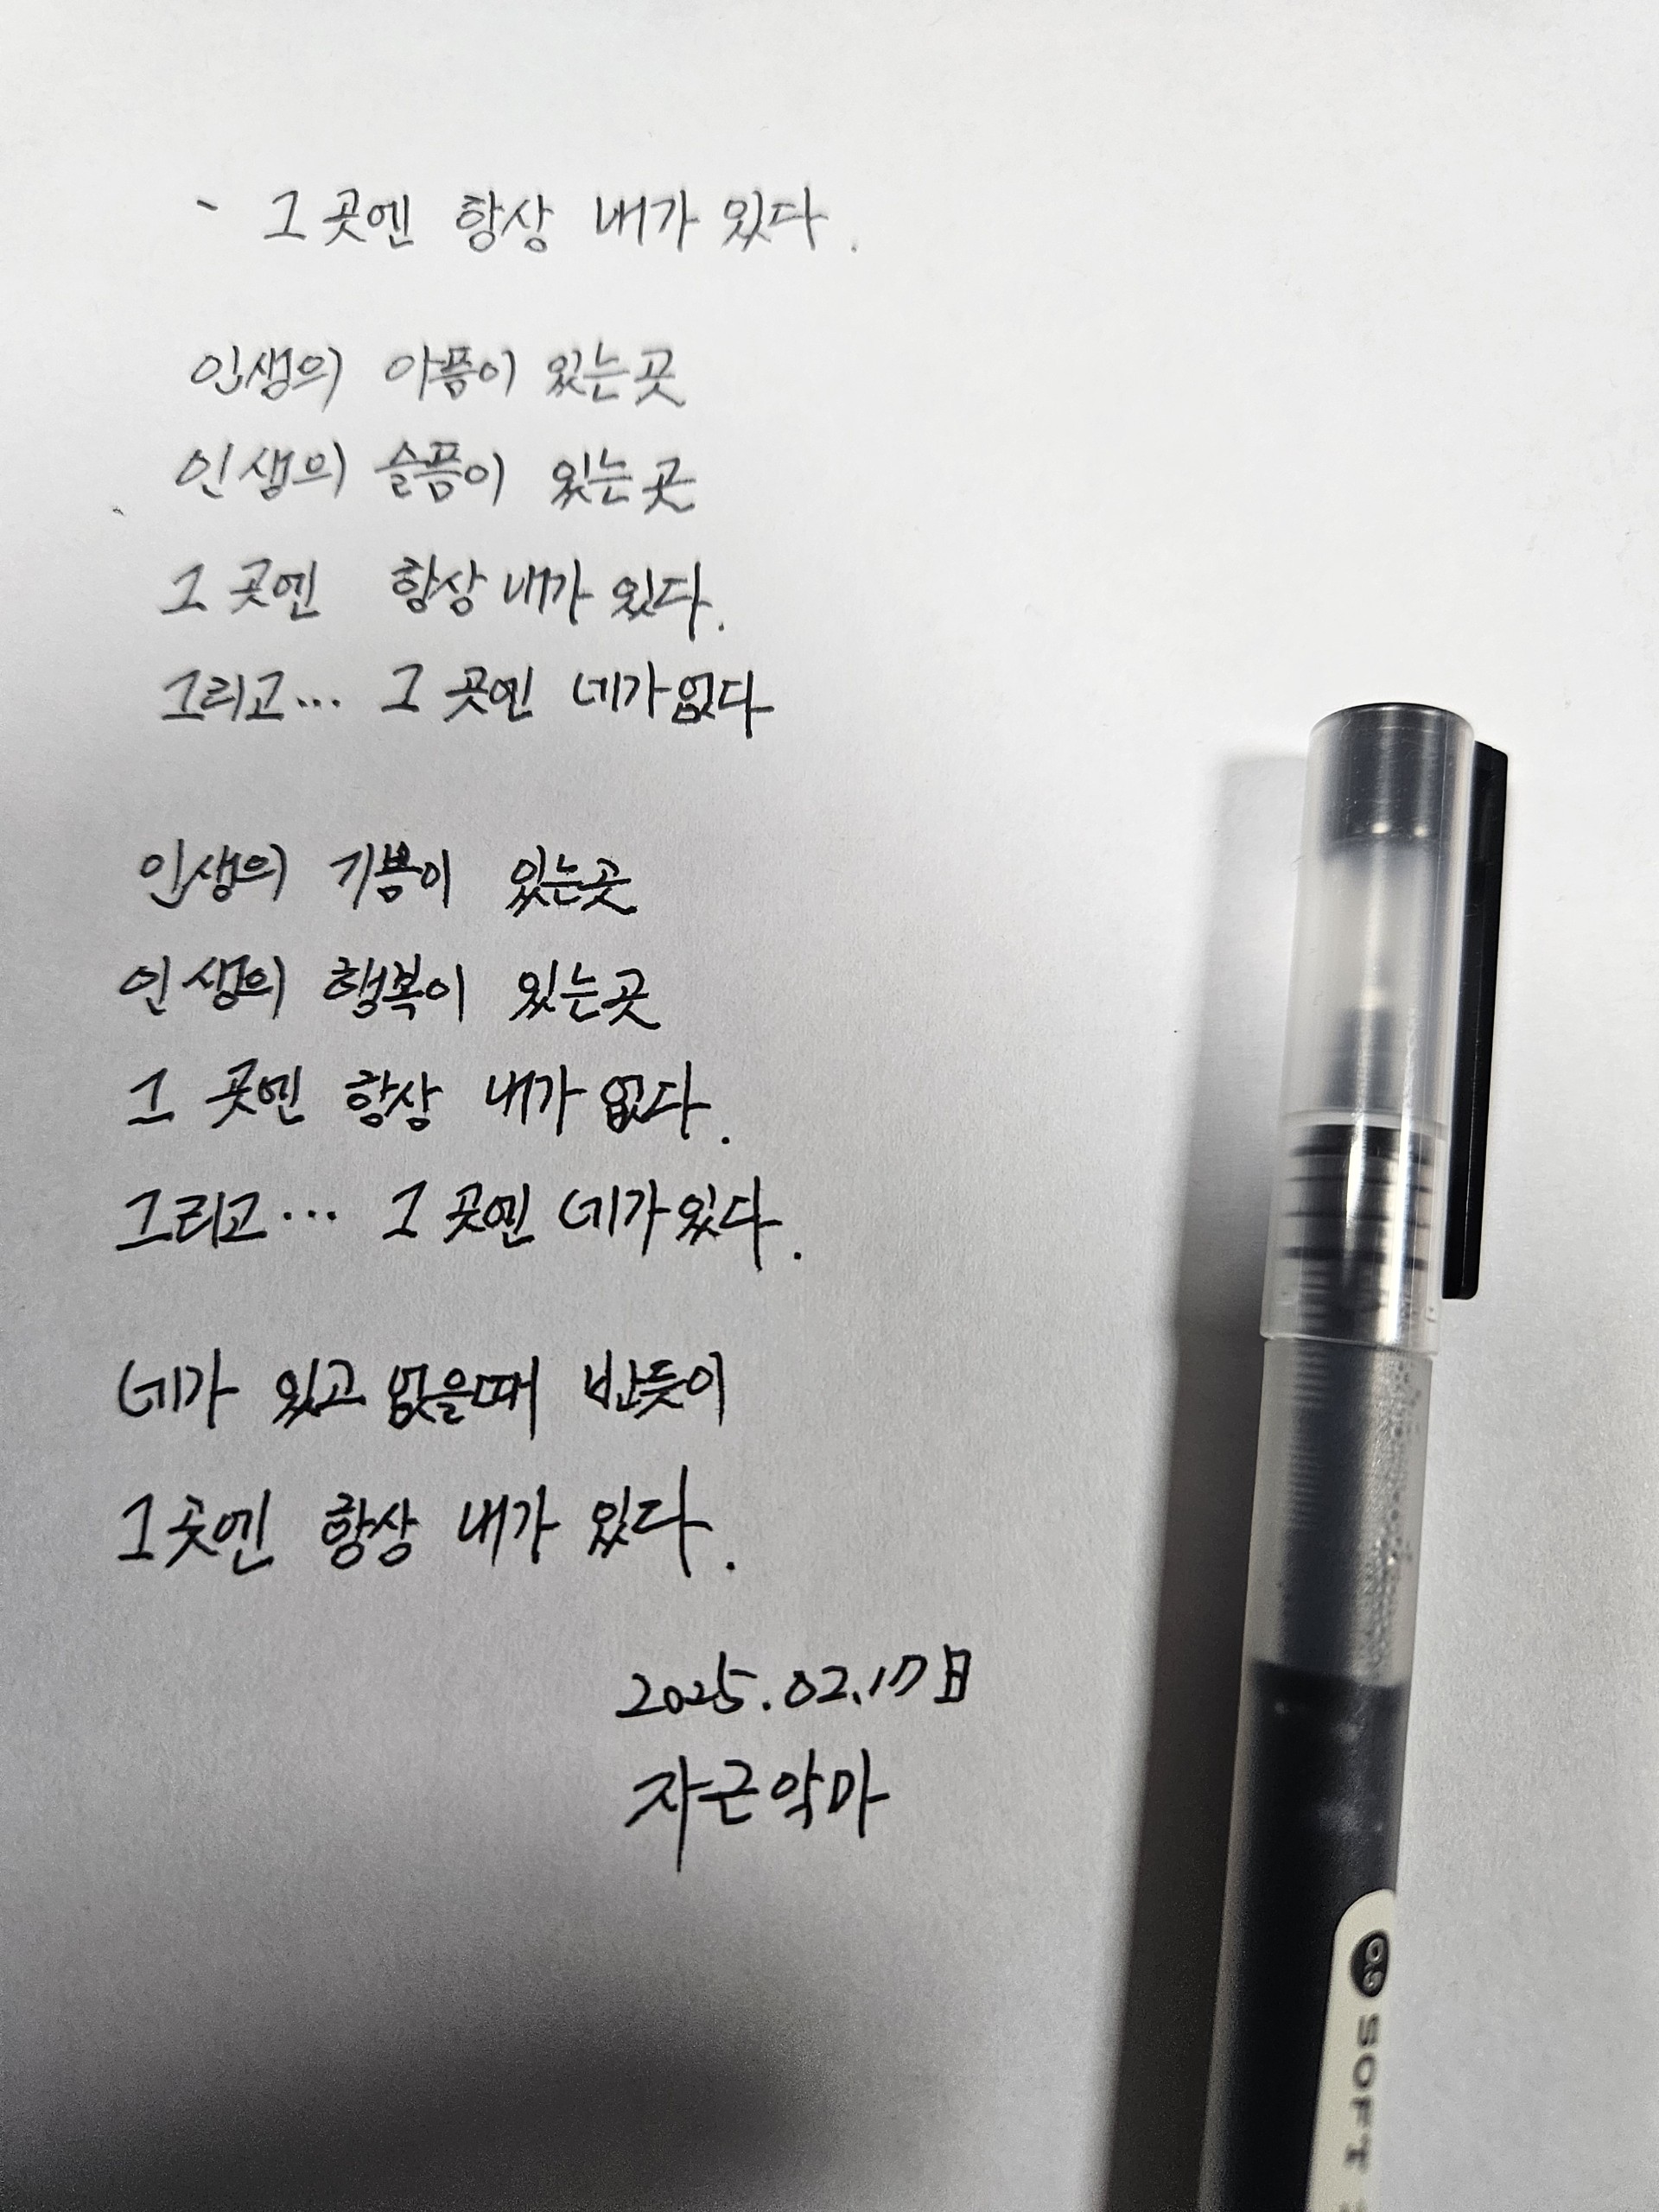 - 그 곳엔 항상 내가 있다.
인생의 아픔이 있는곳
인생의 슬픔이 있는곳
그 곳엔 항상 내가 있다.
그리고... 그 곳엔 네가 없다
인생의 기쁨이 있는곳
인생의 행복이 있는곳
그 곳엔 항상 내가 없다.
그리고... 그 곳엔 네가 있다.
네가 있고 없을때 반듯이
그곳엔 항상 내가 있다.
2025.02.17日
자근악마
0.5 SOFT